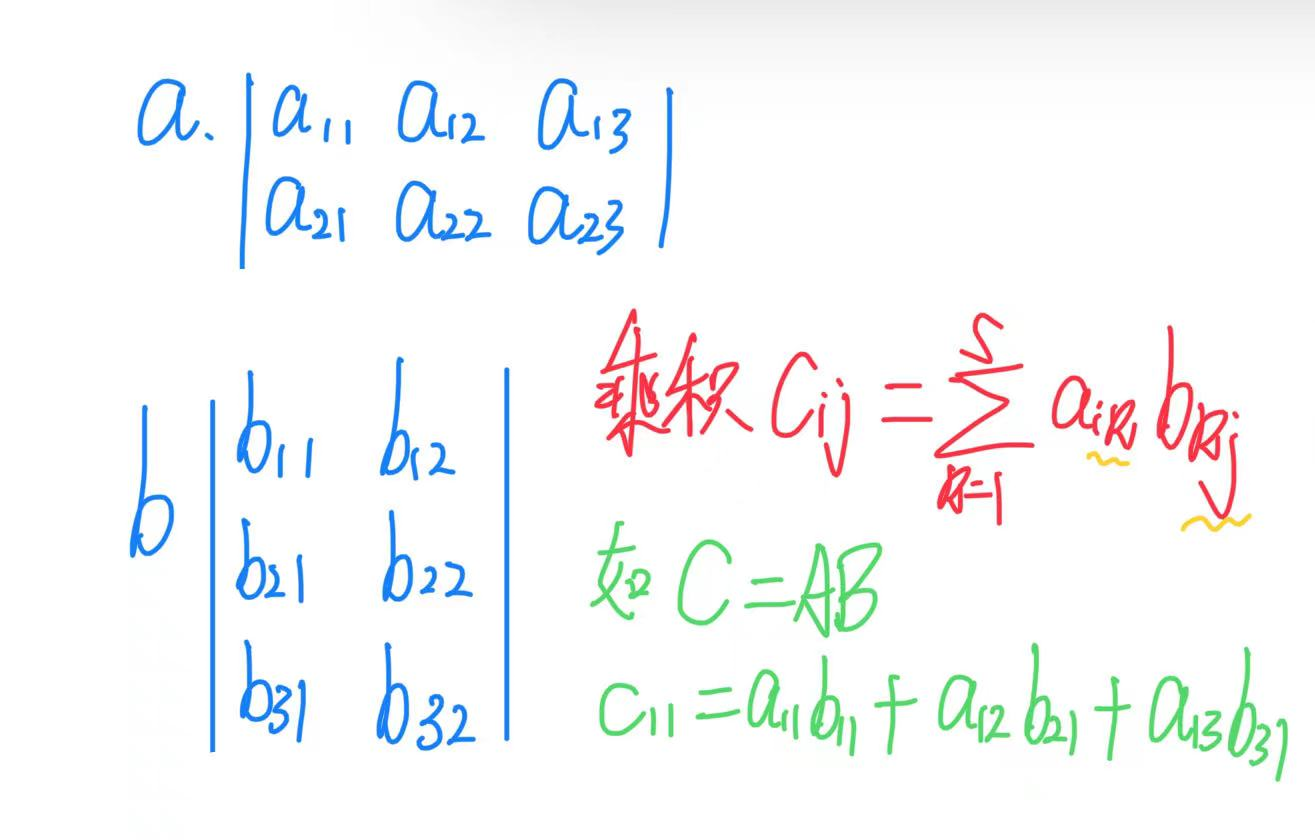 a. | a₁₁ a₁₂ a₁₃ |
| a₂₁ a₂₂ a₂₃ |
b | b₁₁ b₁₂ |
| b₂₁ b₂₂ |
| b₃₁ b₃₂ |
乘积 Cᵢⱼ = ∑ₖ₌₁ˢ aᵢₖ bₖⱼ
如 C = AB
c₁₁ = a₁₁b₁₁ + a₁₂b₂₁ + a₁₃b₃₁